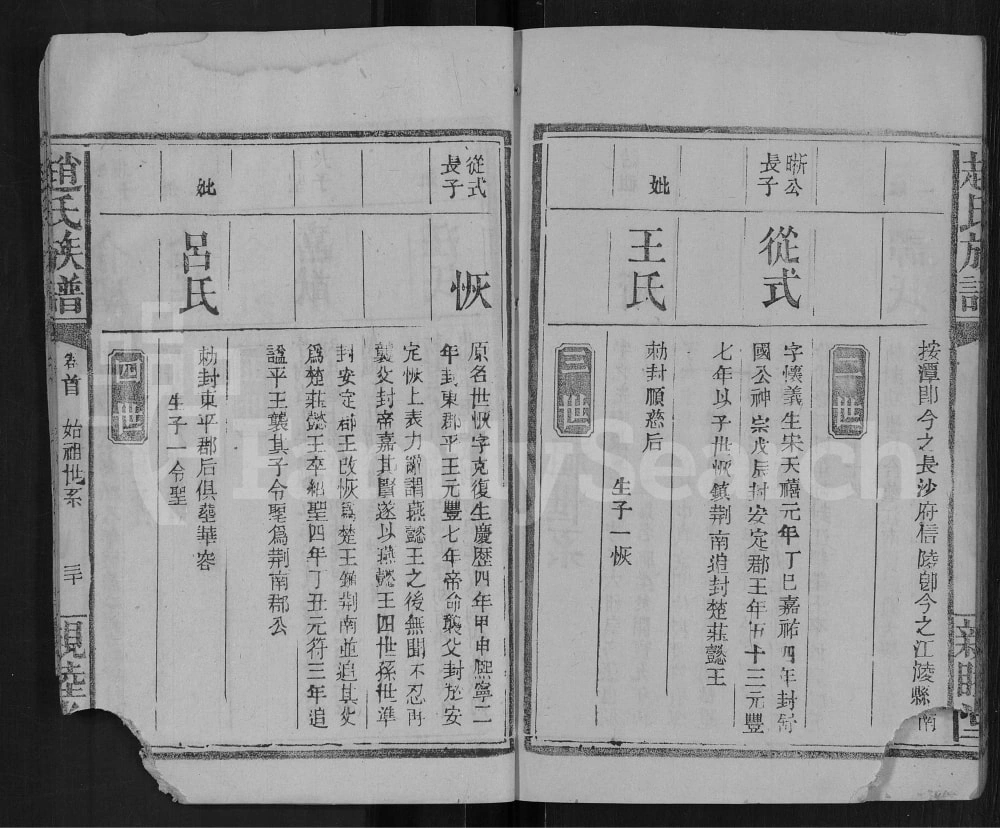 趙氏族譜
親睦堂
按潭卽今之長沙府信陵卽今之江陵縣南
二世
晰公
長子
從式
字懷義生宋天禧元年丁巳嘉祐四年封舒
國公神宗戊辰封安定郡王年五十三元豐
七年以子世恢鎮荆南追封楚莊懿王
妣
王氏
勅封順慈后
生子一恢
三世
從式
長子
恢
原名世恢字克復生慶歷四年甲申熙寧二
年封東郡平王元豐七年帝命襲父封於安
定恢上表力辭謂燕懿王之後無聞不忍再
襲父封帝嘉其賢遂以燕懿王四世孫世準
封安定郡王改恢爲楚王鎮荆南並追其父
爲楚莊懿王卒紹聖四年丁丑元符三年追
諡平王襲其子令聖爲荆南郡公
妣
呂氏
勅封東平郡后俱塟華容
生子一令聖
四世
趙氏族譜
卷首
始祖世系
三十
親睦堂
FamilySearch